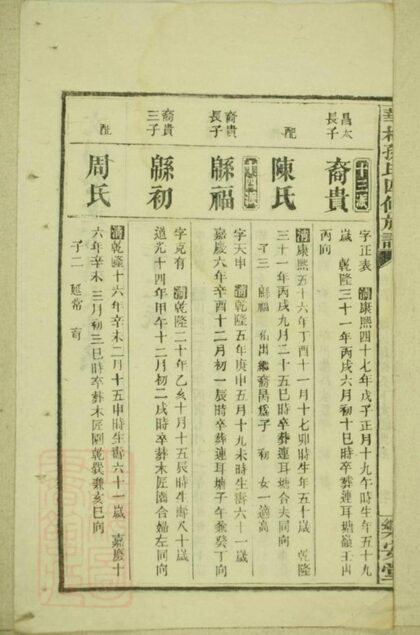 昌太長子
十三派
裔貴
字正表 清康熙四十七年戊子正月十九午時生年五十九
歲 乾隆三十一年丙戌六月初十巳時卒葬蓮耳塘嶺壬山
丙向
配
陳氏
清康熙五十六年丁酉十一月十七卯時生年五十歲 乾隆
三十一年丙戌九月二十五巳時卒葬蓮耳塘合夫同向
子三 緜福 出繼裔昌為子 初 女一適高
裔貴長子
緜福
字天申 清乾隆五年庚申五月十九未時生壽六十一歲
嘉慶六年辛酉十二月初一辰時卒葬蓮耳塘子午兼癸丁向
裔貴三子
緜初
字克有 清乾隆二十年乙亥十月十五辰時生壽八十歲
道光十四年甲午十二月初二戌時卒葬木匠園合婦左同向
配
周氏
清乾隆十六年辛未二月十五申時生壽六十一歲 嘉慶十
六年辛未三月初三巳時卒葬木匠園乾巽兼亥巳向
子二 延常
樂安堂